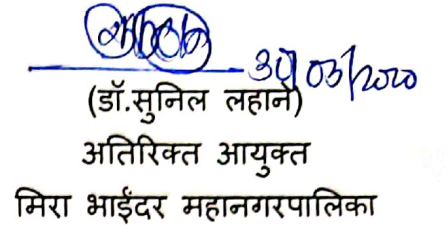 30/03/2020
(डॉ.सुनिल लहाने)
अतिरिक्त आयुक्त
मिरा भाईंदर महानगरपालिका